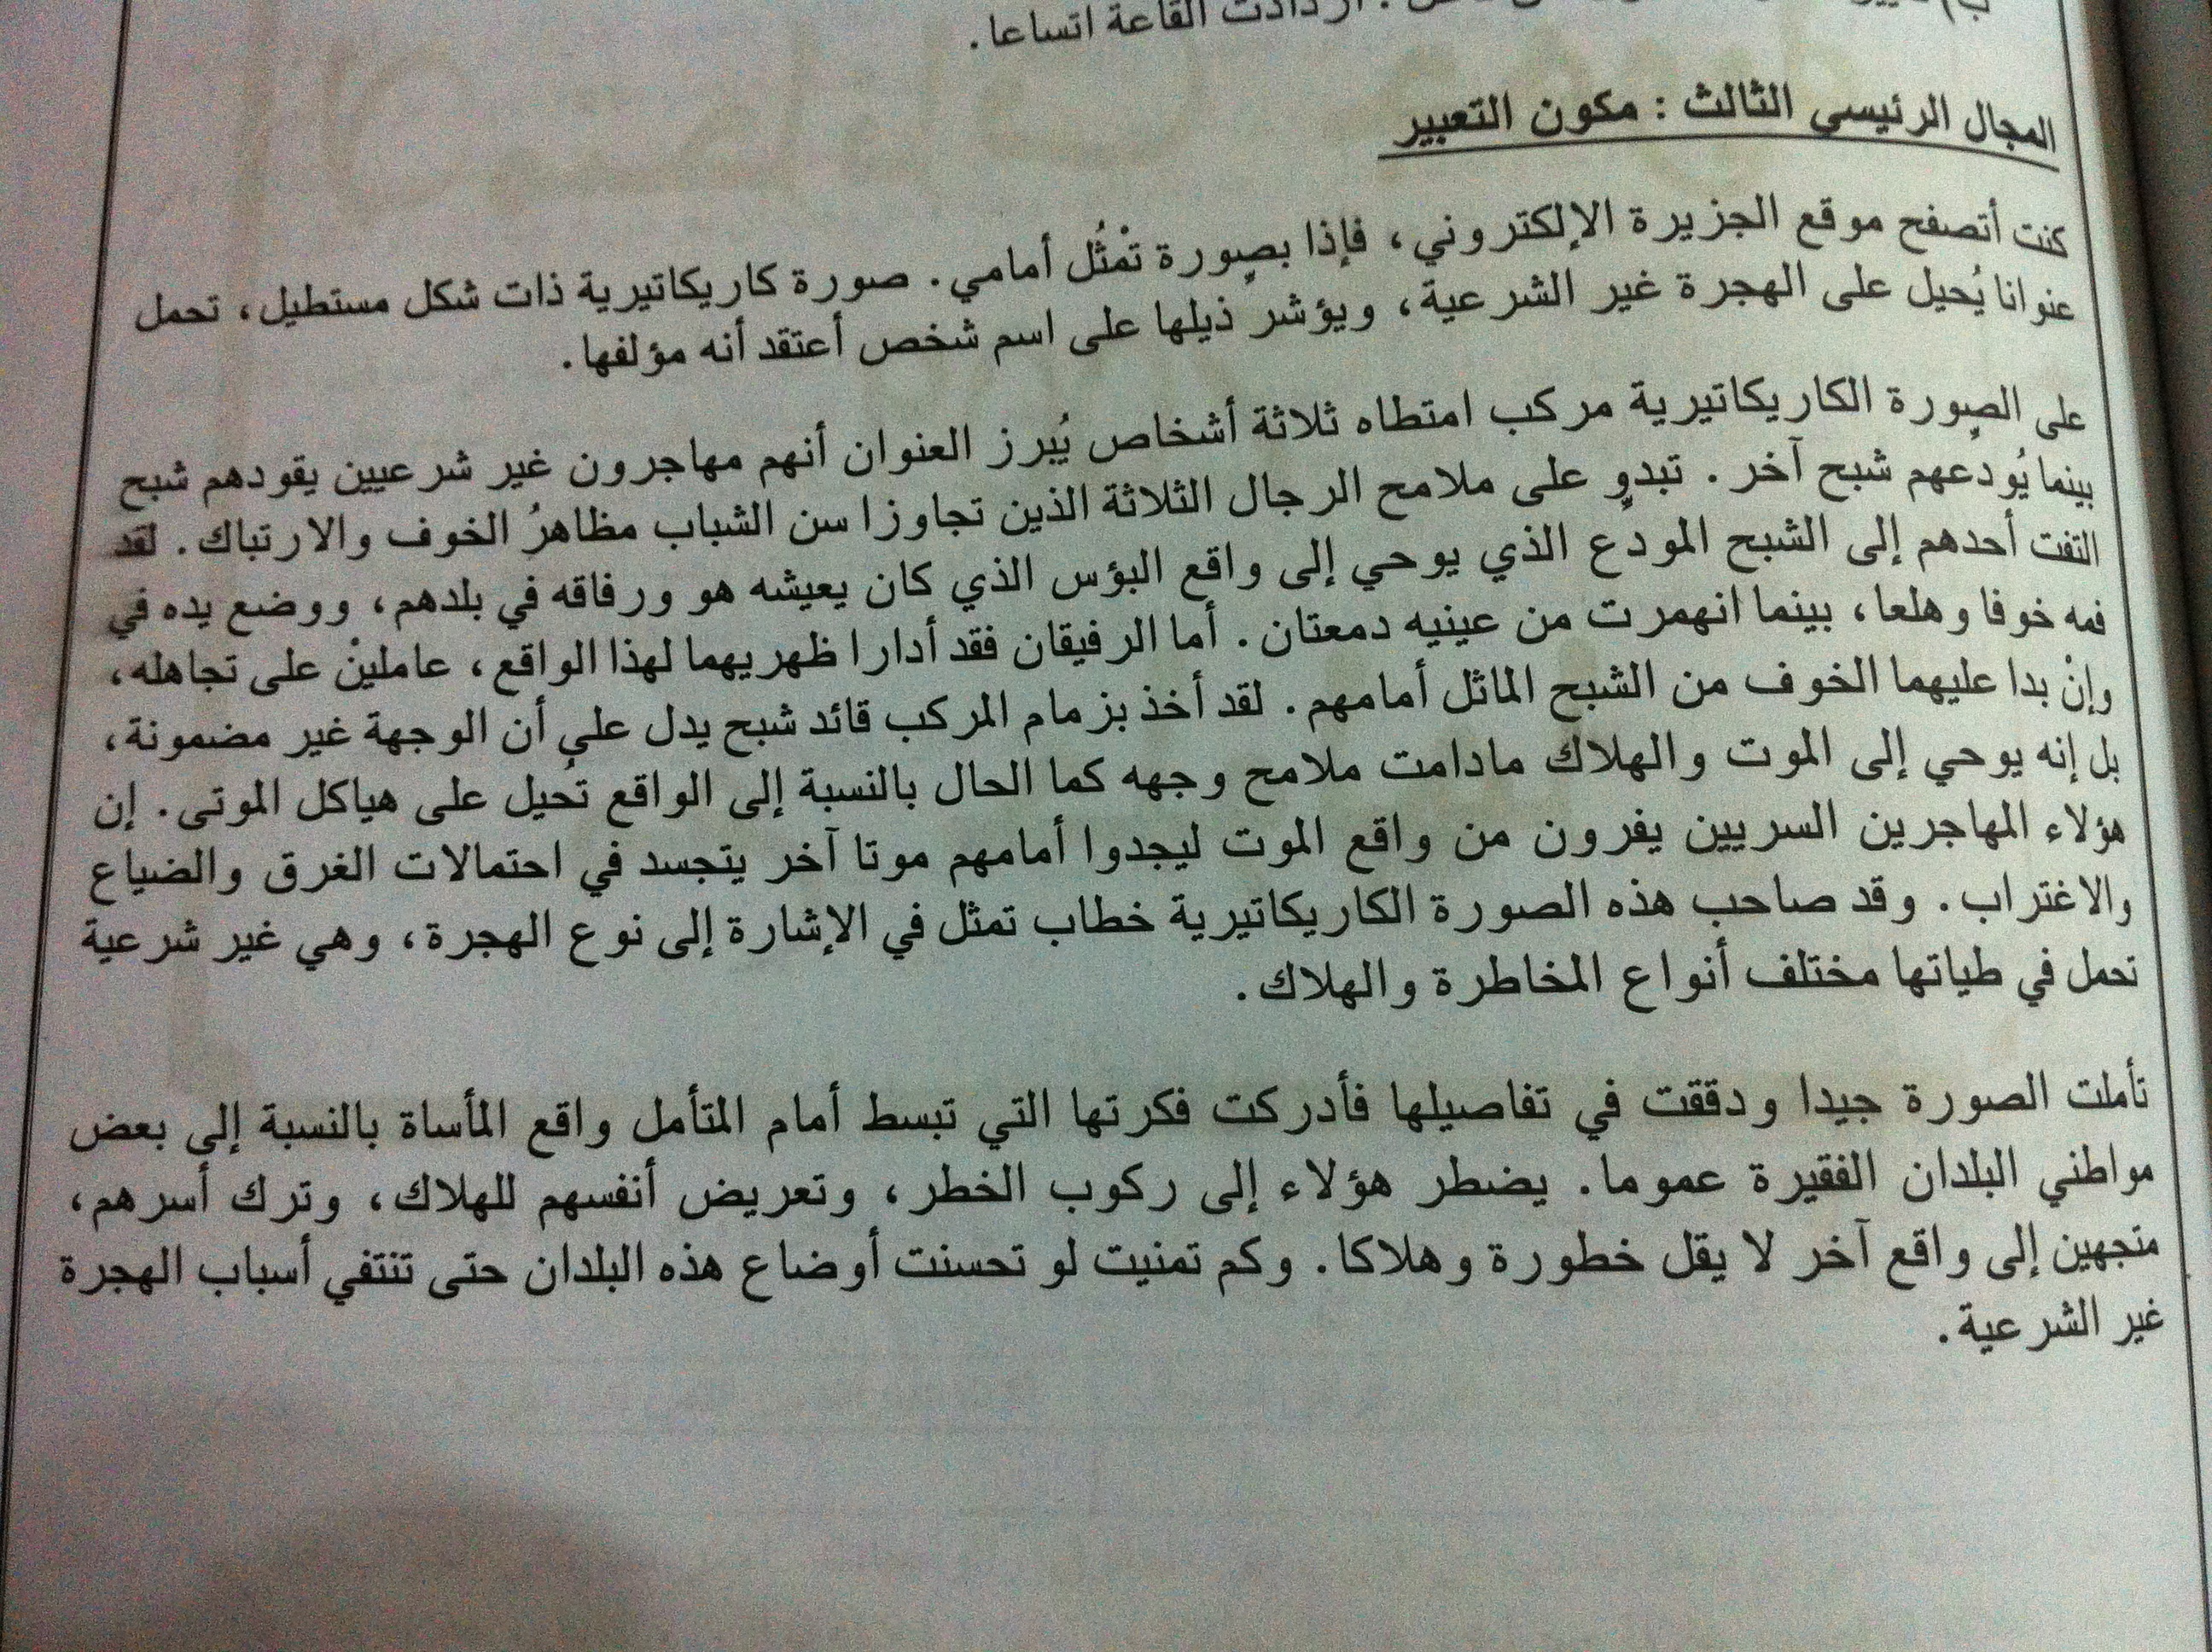 ازدادت القاعة اتساعا.
المجال الرئيسي الثالث : مكون التعبير
كنت أتصفح موقع الجزيرة الإلكتروني، فإذا بصورة تمْثُل أمامي. صورة كاريكاتيرية ذات شكل مستطيل، تحمل
عنوانا يُحيل على الهجرة غير الشرعية، ويؤشر ذيلها على اسم شخص أعتقد أنه مؤلفها.
على الصورة الكاريكاتيرية مركب امتطاه ثلاثة أشخاص يُبرز العنوان أنهم مهاجرون غير شرعيين يقودهم شبح
بينما يُودعهم شبح آخر. تبدو على ملامح الرجال الثلاثة الذين تجاوزا سن الشباب مظاهرُ الخوف والارتباك. لقد
التفت أحدهم إلى الشبح المودع الذي يوحي إلى واقع البؤس الذي كان يعيشه هو ورفاقه في بلدهم، ووضع يده في
فمه خوفا وهلعا، بينما انهمرت من عينيه دمعتان. أما الرفيقان فقد أدارا ظهريهما لهذا الواقع، عاملينْ على تجاهله،
وإنْ بدا عليهما الخوف من الشبح الماثل أمامهم. لقد أخذ بزمام المركب قائد شبح يدل على أن الوجهة غير مضمونة،
بل إنه يوحي إلى الموت والهلاك مادامت ملامح وجهه كما الحال بالنسبة إلى الواقع تُحيل على هياكل الموتى. إن
هؤلاء المهاجرين السريين يفرون من واقع الموت ليجدوا أمامهم موتا آخر يتجسد في احتمالات الغرق والضياع
والاغتراب. وقد صاحب هذه الصورة الكاريكاتيرية خطاب تمثل في الإشارة إلى نوع الهجرة، وهي غير شرعية
تحمل في طياتها مختلف أنواع المخاطرة والهلاك.
تأملت الصورة جيدا ودققت في تفاصيلها فأدركت فكرتها التي تبسط أمام المتأمل واقع المأساة بالنسبة إلى بعض
مواطني البلدان الفقيرة عموما. يضطر هؤلاء إلى ركوب الخطر، وتعريض أنفسهم للهلاك، وترك أسرهم،
متجهين إلى واقع آخر لا يقل خطورة وهلاكا. وكم تمنيت لو تحسنت أوضاع هذه البلدان حتى تنتفي أسباب الهجرة
غير الشرعية.